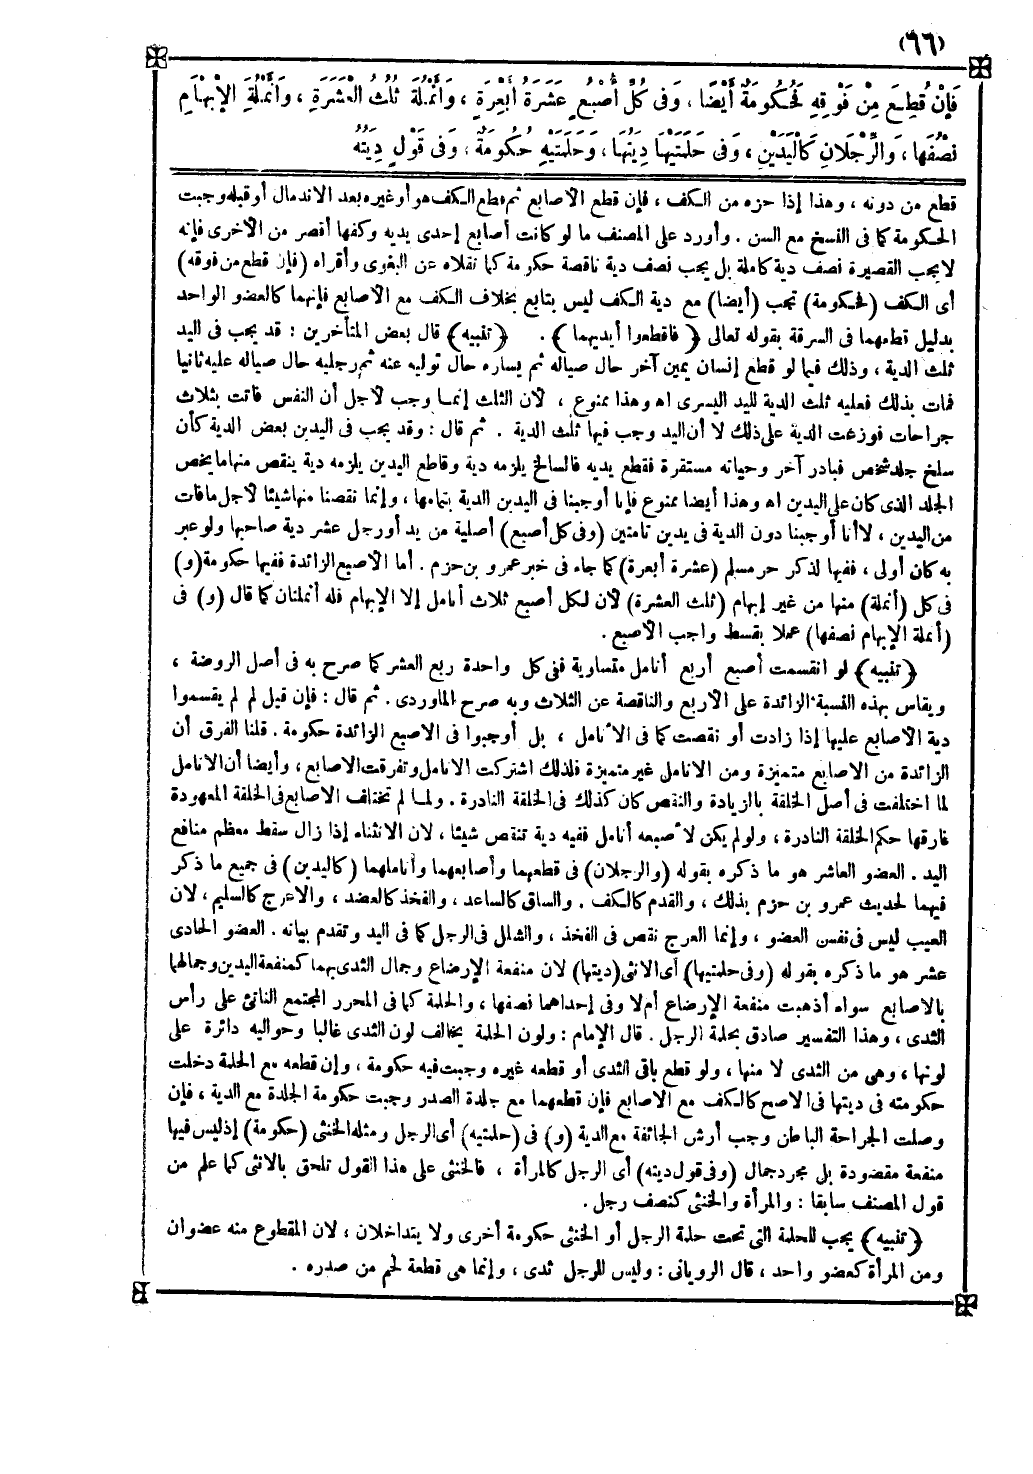 (٦٦)
فَإِنْ قُطِعَ مِنْ فَوْقِهِ فَحُكُومَةٌ أَيْضًا ، وَفِى كُلِّ أُصْبُعٍ عَشَرَةُ أَبْعِرَةٍ ، وَأُنْمُلَةٍ ثُلُثُ الْعَشَرَةِ ، وَأُنْمُلَةِ الْإِبْهَامِ
نِصْفُهَا ، وَالرِّجْلَانِ كَالْيَدَيْنِ ، وَفِى حَلَمَتَيْهَا دِيَتُهَا ، وَحَلَمَتَيْهِ حُكُومَةٌ ، وَفِى قَوْلٍ دِيَتُهُ
قطع من دونه ، وهذا إذا حزه من الكف ، فإن قطع الأصابع ثم قطع الكف هو أو غيره بعد الاندمال أو قبله وجبت
الحكومة كما فى السنخ مع السن . وأورد على المصنف ما لو كانت أصابع إحدى يديه وكفها أقصر من الأخرى فإنه
لا يجب القصيرة نصف دية كاملة بل يجب نصف دية ناقصة حكومة كما نقلاه عن البغوى وأقراه (فإن قطع من فوقه)
أى الكف (فحكومة) تجب (أيضا) مع دية الكف ليس بتابع بخلاف الكف مع الأصابع فإنهما كالعضو الواحد
بدليل قطعهما فى السرقة بقوله تعالى (فاقطعوا أيديهما) . (تنبيه) قال بعض المتأخرين : قد يجب فى اليد
ثلث الدية ، وذلك فيما لو قطع إنسان يمين آخر حال صياله ثم يساره حال توليه عنه ثم رجليه حال صياله عليه ثانيا
فمات بذلك فعليه ثلث الدية لليد اليسرى اه وهذا ممنوع ، لأن الثلث إنما وجب لأجل أن النفس فاتت بثلاث
جراحات فوزعت الدية على ذلك لا أن اليد وجب فيها ثلث الدية . ثم قال : وقد يجب فى اليدين بعض الدية كأن
سلخ جلد شخص فبادر آخر وحياته مستقرة فقطع يديه فالسالخ يلزمه دية وقاطع اليدين يلزمه دية ينقص منها ما يخص
الجلد الذى كان على اليدين اه وهذا أيضا ممنوع فإنا أوجبنا فى اليدين الدية بتمامها ، وإنما نقصنا منها شيئا لأجل ما فات
من اليدين ، لا أنا أوجبنا دون الدية فى يدين تامتين (وفى كل أصبع) أصلية من يد أو رجل عشر دية صاحبها ولو عبر
به كان أولى ، ففيها لذكر حر مسلم (عشرة أبعرة) كما جاء فى خبر عمرو بن حزم . أما الأصبع الزائدة ففيها حكومة (و)
فى كل (أنملة) منها من غير إبهام (ثلث العشرة) لأن لكل أصبع ثلاث أنامل إلا الإبهام فله أنملتان كما قال (و) فى
(أنملة الإبهام نصفها) عملا بقسط واجب الأصبع .
(تنبيه) لو انقسمت أصبع أربع أنامل متساوية ففى كل واحدة ربع العشر كما صرح به فى أصل الروضة ،
ويقاس بهذه النسبة الزائدة على الأربع والناقصة عن الثلاث وبه صرح الماوردى . ثم قال : فإن قيل لم لم يقسموا
دية الأصابع عليها إذا زادت أو نقصت كما فى الأنامل ، بل أوجبوا فى الأصبع الزائدة حكومة . قلنا الفرق أن
الزائدة من الأصابع متميزة ومن الأنامل غير متميزة فلذلك اشتركت الأنامل وتفرقت الأصابع ، وأيضا أن الأنامل
لما اختلفت فى أصل الخلقة بالزيادة والنقص كان كذلك فى الخلقة النادرة . ولما لم تختلف الأصابع فى الخلقة المعهودة
فارقها حكم الخلقة النادرة ، ولو لم يكن لأصبعه أنامل ففيه دية تنقص شيئا ، لأن الانثناء إذا زال سقط معظم منافع
اليد . العضو العاشر هو ما ذكره بقوله (والرجلان) فى قطعهما وأصابعهما وأناملهما (كاليدين) فى جميع ما ذكر
فيهما لحديث عمرو بن حزم بذلك ، والقدم كالكف . والساق كالساعد ، والفخذ كالعضد ، والأعرج كالسليم ، لأن
العيب ليس فى نفس العضو ، وإنما العرج نقص فى الفخذ ، والشلل فى الرجل كما فى اليد وتقدم بيانه . العضو الحادى
عشر هو ما ذكره بقوله (وفى حلمتيها) أى الأنثى (ديتها) لأن منفعة الإرضاع وجمال الثدى بهما كمنفعة اليدين وجمالهما
بالأصابع سواء أذهبت منفعة الإرضاع أم لا وفى إحداهما نصفها ، والحلمة كما فى المحرر المجتمع الناتئ على رأس
الثدى ، وهذا التفسير صادق بحلمة الرجل . قال الإمام : ولون الحلمة يخالف لون الثدى غالبا وحواليه دائرة على
لونها ، وهى من الثدى لا منها ، ولو قطع باقى الثدى أو قطعه غيره وجبت فيه حكومة ، وإن قطعه مع الحلمة دخلت
حكومته فى ديتها فى الأصح كالكف مع الأصابع فإن قطعهما مع جلدة الصدر وجبت حكومة الجلدة مع الدية ، فإن
وصلت الجراحة الباطن وجب أرش الجائفة مع الدية (و) فى (حلمتيه) أى الرجل ومثله الخنثى (حكومة) إذ ليس فيها
منفعة مقصودة بل مجرد جمال (وفى قول ديته) أى الرجل كالمرأة ، فالخنثى على هذا القول تلحق بالأنثى كما علم من
قول المصنف سابقا : والمرأة والخنثى كنصف رجل .
(تنبيه) يجب للحلمة التى تحت حلمة الرجل أو الخنثى حكومة أخرى ولا يتداخلان ، لأن المقطوع منه عضوان
ومن المرأة كعضو واحد ، قال الرويانى : وليس للرجل ثدى ، وإنما هى قطعة لحم من صدره .